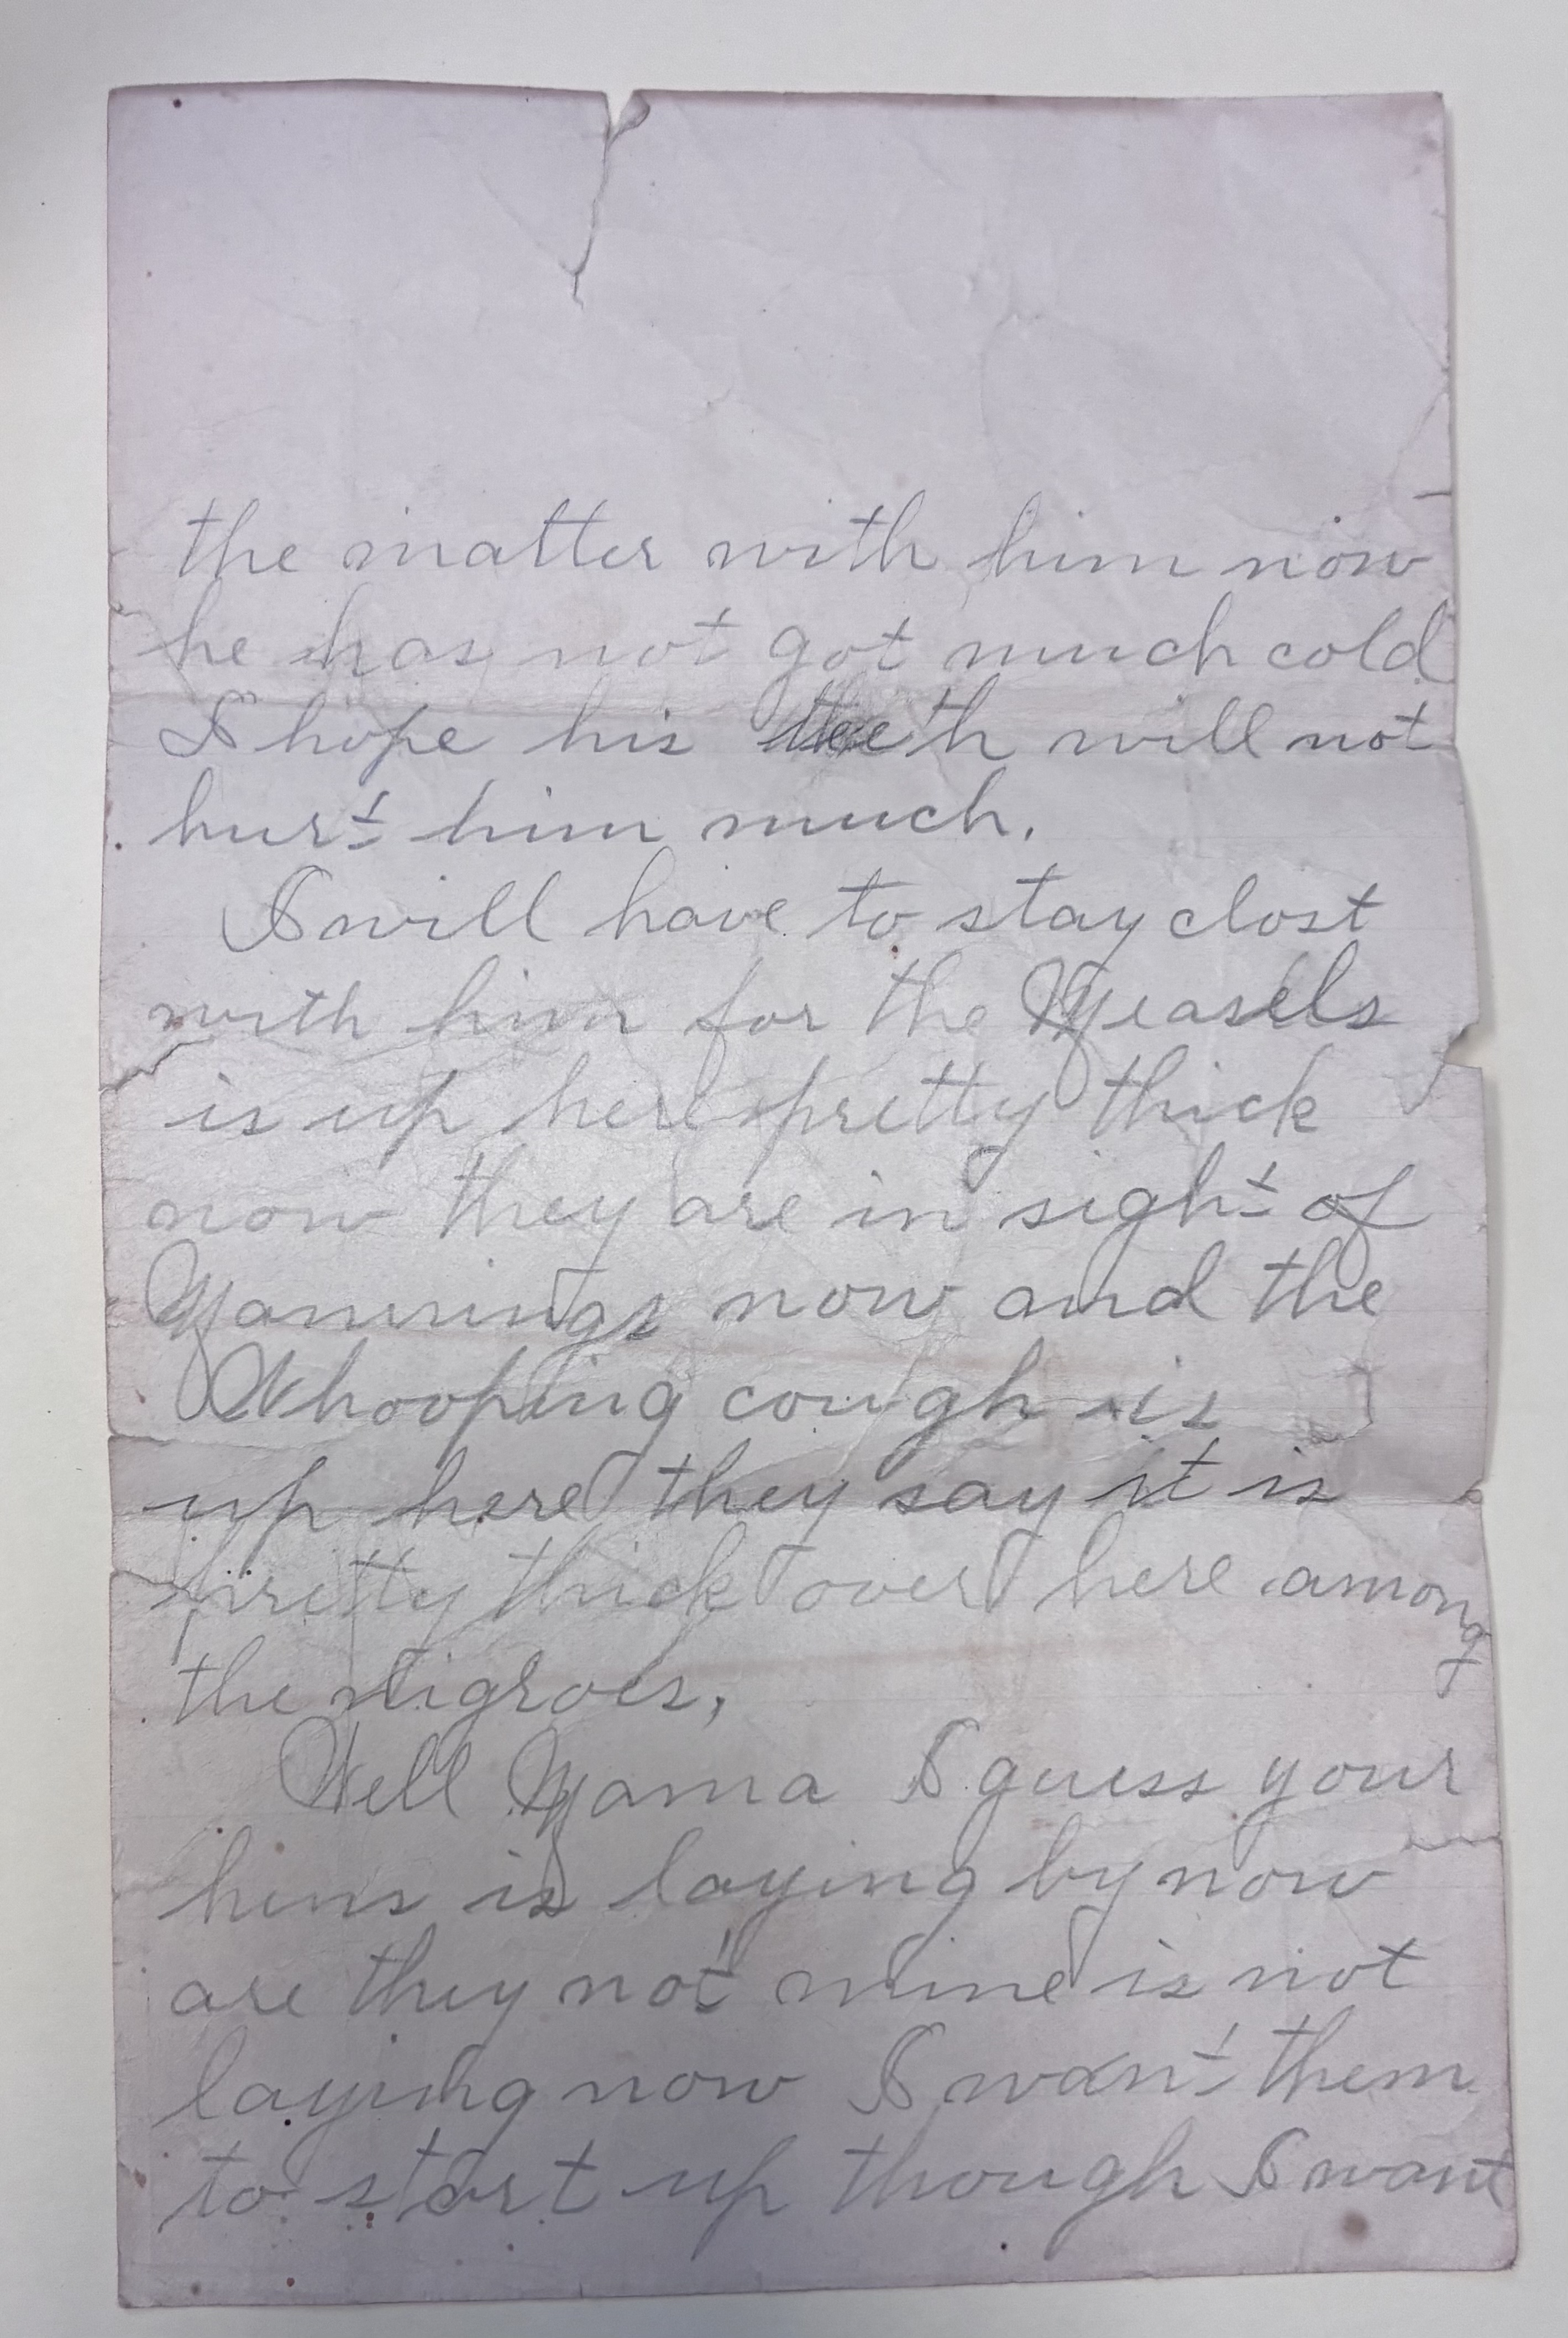 the matter with him now
he has not got much cold
I hope his teeth will not
hurt him much.
I will have to stay clost
with him for the Measels
is up here pretty thick
now they are in sight of
Mannings now and the
Whooping cough is
up here they say it is
pretty thick over here among
the Nigroes,
Well Mama I guess your
hens is laying by now
are they not mine is not
laying now I want them
to start up though I want